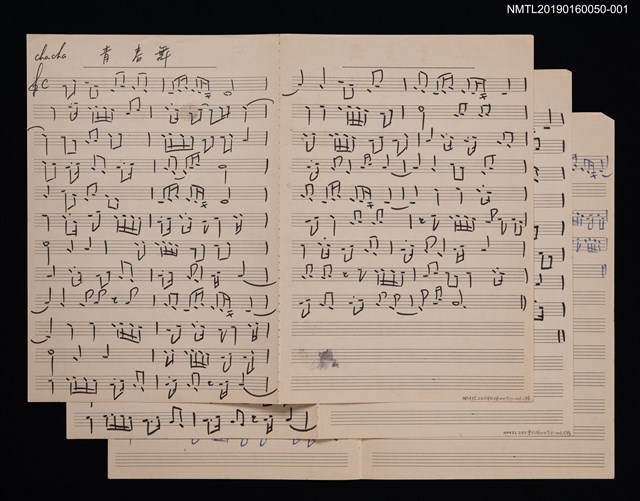 NMTL20190160050-001
chacha 青春舞
C